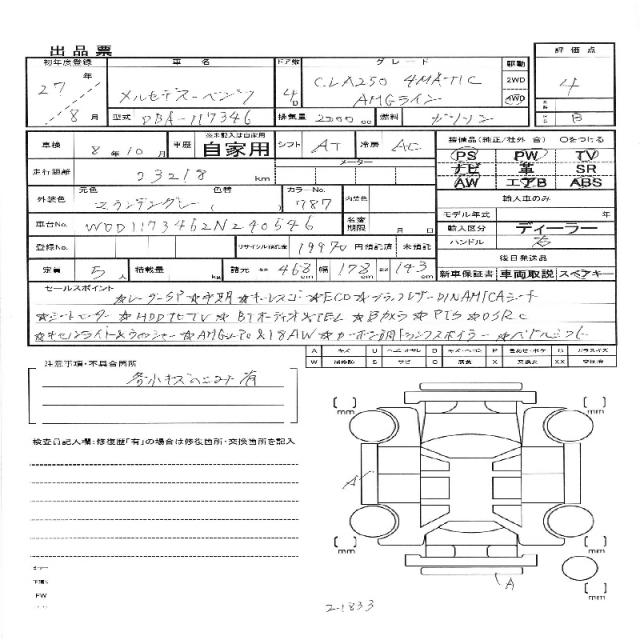 出品票
初年度登録 車名 ドア数 グレード 駆動 評価点
27年 メルセデス-ベンツ 4D CLA250 4MATIC 2WD 4
8月 AMGライン 4WD
型式 DBA-117346 排気量 2000 cc 燃料 ガソリン B
車検 8年10月 車歴 ※未記入は自家用 自家用 シフト AT 冷房 AC 装備品(純正/社外 含) Oをつける
PS PW TV
走行距離 23218 km メーター ナビ 革 SR
AW エアB ABS
外装色 元色 色替 カラーNo. 787 内装色 輸入車のみ
モデル年式 年
車台No. WDD1173462N240546 名変期限 月 日 輸入区分 ディーラー
登録No. リサイクル預託金 19970円 預託済 未預託 ハンドル 右
後日発送品
定員 5人 積載量 kg 諸元 長さ 468 幅 178 高さ 143 cm 新車保証書 車両取説 スペアキー
セールスポイント
★レーダーSP ★ ★キーレスゴー ★ECO ★ブラックレザーDINAMICAシート
★シートヒーター ★HDDナビTV ★BTオーディオ&TEL ★Bカメラ ★PTS ★
★キセノンライト&ウォッシャー ★AMGエアロ&18AW ★カーボン調トランクスポイラー ★パドルシフト
A キズ U ヘコミ
W S サビ C 腐食 X XX
注意事項・不具合箇所
各小キズヘコミ有
検査員記入欄:修復歴「有」の場合は修復箇所・交換箇所を記入
[ ] mm [ ] mm
A
[ ] mm [ ] mm
[ ] mm
A
FW
2-1833